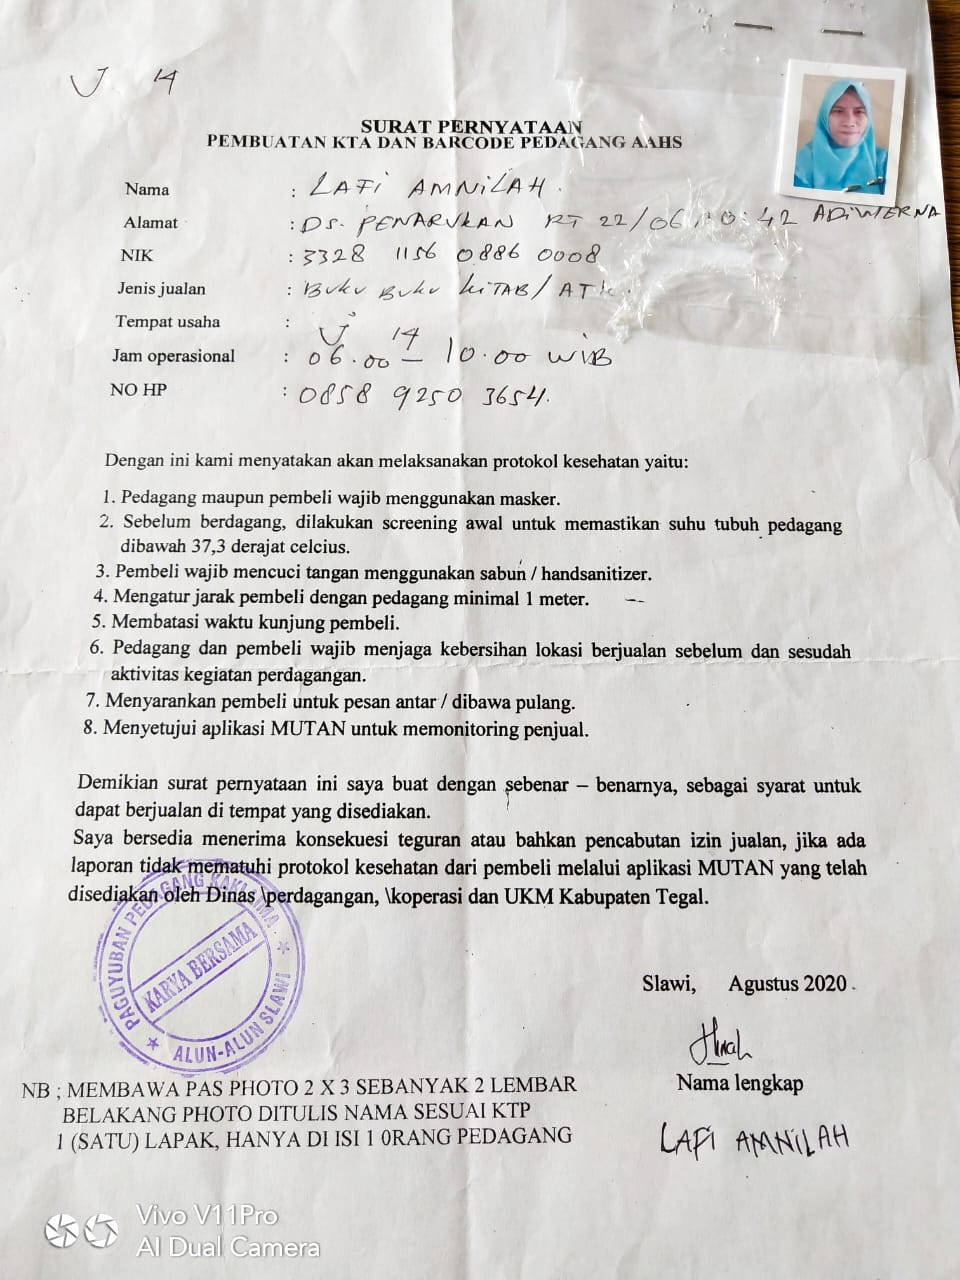 U 14
SURAT PERNYATAAN
PEMBUATAN KTA DAN BARCODE PEDAGANG AAHS
Nama : LAFI AMNILAH.
Alamat : DS. PENARUKAN RT 22/06 , 0:42 ADIWERNA
NIK : 3328 1156 0886 0008
Jenis jualan : BUKU BUKU KITAB/ ATK.
Tempat usaha : U 14
Jam operasional : 06.00 – 10.00 WIB
NO HP : 0858 9250 3654.
Dengan ini kami menyatakan akan melaksanakan protokol kesehatan yaitu:
1. Pedagang maupun pembeli wajib menggunakan masker.
2. Sebelum berdagang, dilakukan screening awal untuk memastikan suhu tubuh pedagang
dibawah 37,3 derajat celcius.
3. Pembeli wajib mencuci tangan menggunakan sabun / handsanitizer.
4. Mengatur jarak pembeli dengan pedagang minimal 1 meter.
5. Membatasi waktu kunjung pembeli.
6. Pedagang dan pembeli wajib menjaga kebersihan lokasi berjualan sebelum dan sesudah
aktivitas kegiatan perdagangan.
7. Menyarankan pembeli untuk pesan antar / dibawa pulang.
8. Menyetujui aplikasi MUTAN untuk memonitoring penjual.
Demikian surat pernyataan ini saya buat dengan sebenar – benarnya, sebagai syarat untuk
dapat berjualan di tempat yang disediakan.
Saya bersedia menerima konsekuesi teguran atau bahkan pencabutan izin jualan, jika ada
laporan tidak mematuhi protokol kesehatan dari pembeli melalui aplikasi MUTAN yang telah
disediakan oleh Dinas \perdagangan, \koperasi dan UKM Kabupaten Tegal.
PAGUYUBAN PEDAGANG KAKI LIMA
KARYA BERSAMA
ALUN-ALUN SLAWI
Slawi, Agustus 2020
Nama lengkap
LAFI AMNILAH
NB ; MEMBAWA PAS PHOTO 2 X 3 SEBANYAK 2 LEMBAR
BELAKANG PHOTO DITULIS NAMA SESUAI KTP
1 (SATU) LAPAK, HANYA DI ISI 1 0RANG PEDAGANG
Vivo V11Pro
AI Dual Camera